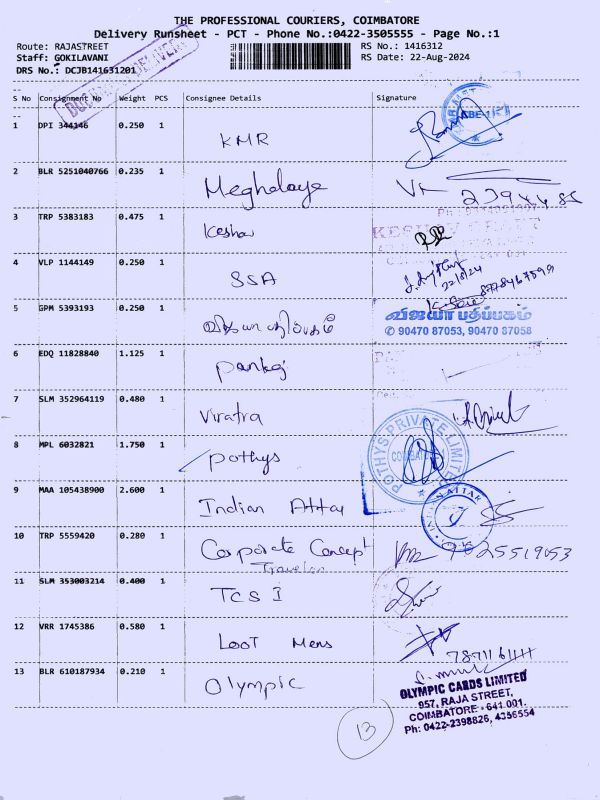 THE PROFESSIONAL COURIERS, COIMBATORE
Delivery Runsheet - PCT - Phone No.:0422-3505555 - Page No.:1
Route: RAJASTREET RS No.: 1416312
Staff: GOKILAVANI RS Date: 22-Aug-2024
DRS No.: DCJB141631201
S No Consignment No Weight PCS Consignee Details Signature
1 DPI 344146 0.250 1 KMR
2 BLR 5251040766 0.235 1 Meghalaye
3 TRP 5383183 0.475 1 Keshav
4 VLP 1144149 0.250 1 SSA
22/8/24
8778467599
5 GPM 5393193 0.250 1
விஜயா பதிப்பகம்
✆ 90470 87053, 90470 87058
6 EDQ 11828840 1.125 1 Pankaj
7 SLM 352964119 0.480 1 Viratra
8 MPL 6032821 1.750 1 Pothys
POTHYS PRIVATE LIMITED
9 MAA 105438900 2.600 1 Indian Attar
10 TRP 5559420 0.280 1 Corporate Concept
Travelon
11 SLM 353003214 0.400 1 TCS I
12 VRR 1745386 0.580 1 Loot Mens
13 BLR 610187934 0.210 1 Olympic
OLYMPIC CARDS LIMITED
957, RAJA STREET,
COIMBATORE - 641 001.
Ph: 0422-2398826, 4356554
13